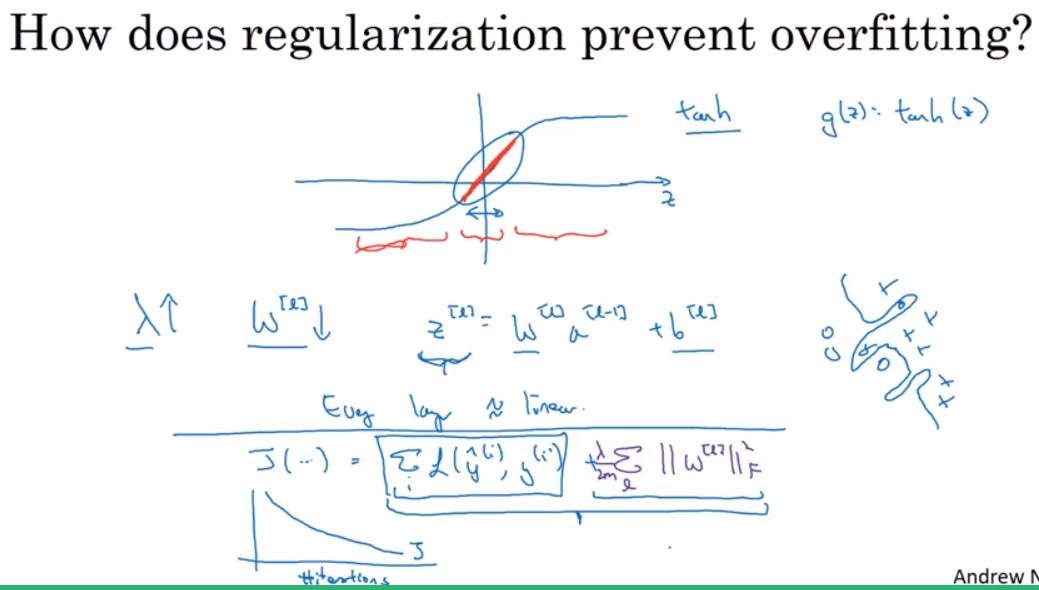 How does regularization prevent overfitting?
tanh
g(z) = tanh(z)
z
λ↑
W^[l]↓
z^[l] = W^[l] a^[l-1] + b^[l]
Every layer ≈ linear.
J(...) = Σ_i L(ŷ^(i), y^(i)) + λ/2m Σ_l ||W^[l]||²_F
J
#iterations
Andrew N